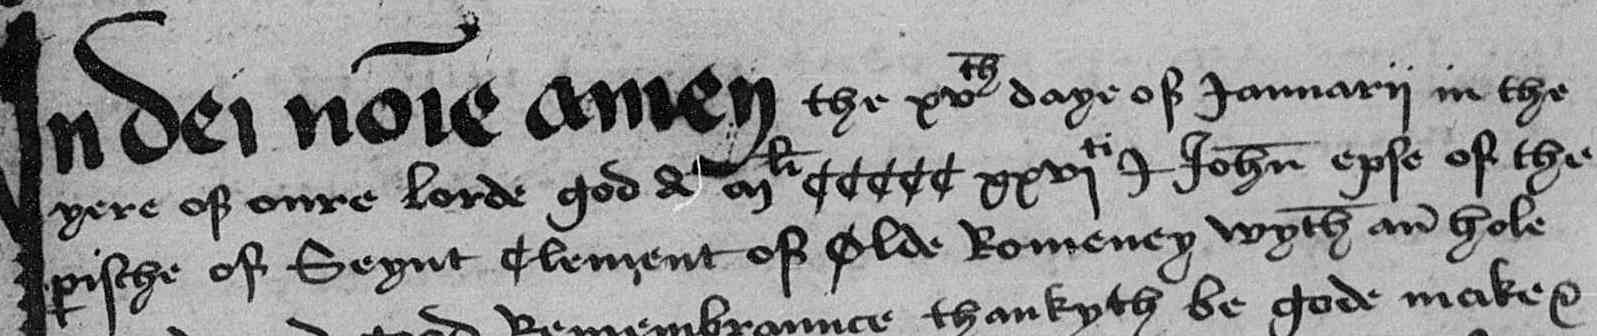 In dei noīe amen the xvth daye of Januarij in the
yere of oure lorde god mlı CCCCC xxvjti I John epse of the
pische of Seynt Clement of Olde Romeney wyth an hole
Remembraunce thankyth be gode make